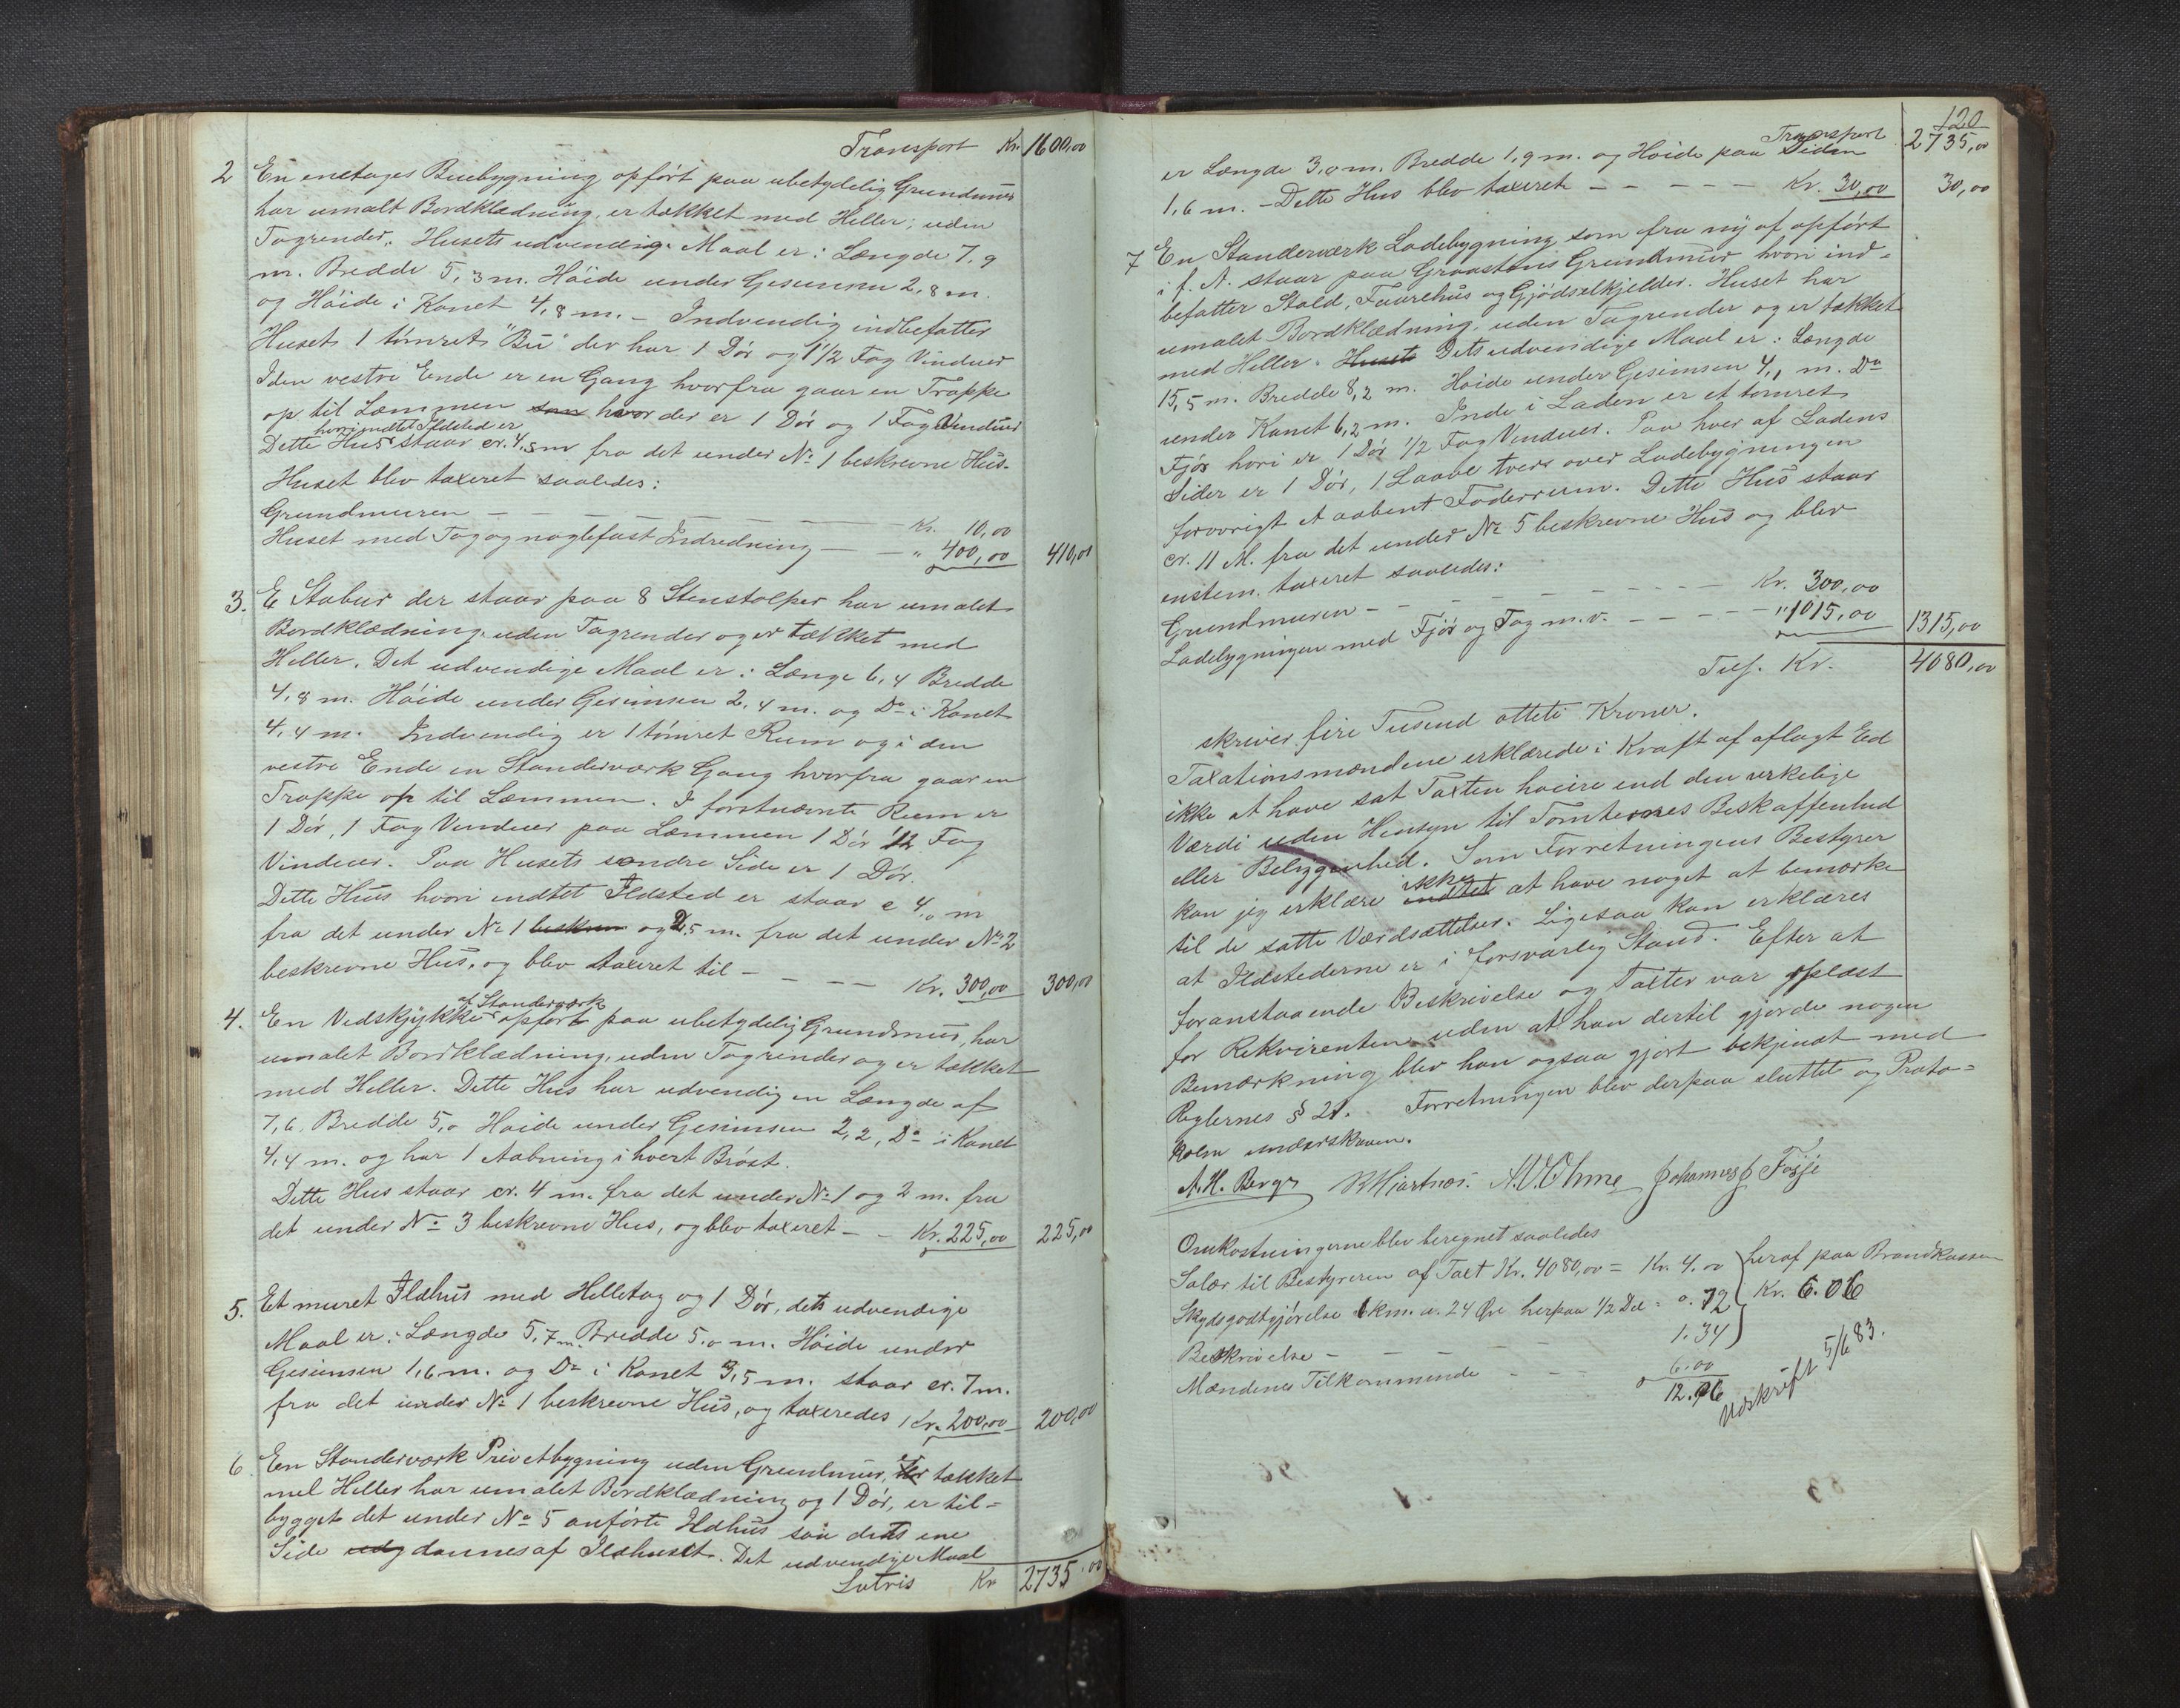 Transport Kr. 1600,00
2 En enetages Buebygning opført paa ubetydelig Grundmur
har umalt Bordklædning, er tækket med Heller; uden
Tagrender. Husets udvendige Maal er: Længde 7,9
m. Bredde 5,3 m. Høide under Gesimsen 2,8 m.
og Høide i Kanet 4,8 m. – Indvendig indbefatter
Huset 1 tømret "Bu" der har 1 Dør og 1 1/2 Fag Vinduer
I den vestre Ende er en Gang hvorfra gaar en Trappe
op til Læmmen som hvor der er 1 Dør og 1 Fag Vinduer
hvori indtet Ildsted er
Dette Hus staar cr. 4,5 m fra det under No 1 beskrevne Hus.
Huset blev taxeret saaledes:
Grundmuren – – – – – – – Kr. 10,00
Huset med Tag og naglefast Indredning – – " 400,00 410,00
3. E Stabur der staar paa 8 Stenstolper har umalet
Bordklædning, uden Tagrender og er tækket med
Heller. Det udvendige Maal er: Længe 6,4 Bredde
4,8 m. Høide under Gesimsen 2,4 m. og Do i Kanet
4,4 m. Indvendig er 1 tømret Rum og i den
vestre Ende en Standerværk Gang hvorfra gaar en
Trappe op til Læmmen. I førstnævnte Rum er
1 Dør, 1 Fag Vinduer paa Læmmen 1 Dør 1/2 Fag
Vinduer. Paa Husets søndre Side er 1 Dør.
Dette Hus hvori indtet Ildsted er staar c 4,0 m
fra det under No 1 beskrevn og 2,5 m. fra det under No 2
beskrevne Hus, og blev taxeret til – – – Kr. 300,00 300,00
af Standerværk
4. En Vedskjykke opført paa ubetydelig Grundmur, har
umalet Bordklædning, uden Tagrender og er tækket
med Heller. Dette Hus har udvendig en Længde af
7,6. Bredde 5,0 Høide under Gesimsen 2,2, Do i Kanet
4,4 m. og har 1 Aabning i hvert Brøst.
Dette Hus staar cr. 4 m. fra det under No 1 og 2 m. fra
det under No 3 beskrevne Hus, og blev taxeret – – Kr. 225,00 225,00
5. Et muret Ildhus med Helletag og 1 Dør, dets udvendige
Maal er: Længde 5,7 m. Bredde 5,0 m. Høide under
Gesimsen 1,6 m. og Do i Kanet 3,5 m. staar cr. 7 m.
fra det under No 1 beskrevne Hus, og taxeredes Kr. 200,00 200,00
6 En Standerværk Privetbygning uden Grundmur, er tækket
mel Heller har umalet Bordklædning og 1 Dør, er til=
bygget det under No 5 anførte Ildhus saa dets ene
Side udg dannes af Ildhuset. Det udvendige Maal
Latris Kr 2735,00
120
Transport 2735,00
er Længde 3,0 m. Bredde 1,9 m. og Høide paa Siden
1,6 m. – Dette Hus blev taxeret – – – – – Kr. 30,00 30,00
7 En Standerværk Ladebygning som fra ny af opført
i f. A. staar paa Graastens Grundmur hvori ind=
befatter Stald, Faarehus og Gjødselkjelder. Huset har
umalet Bordklædning, uden Tagrender og er tækket
med Heller. Husets Dets udvendige Maal er: Længde
15,5 m. Bredde 8,2 m. Høide under Gesimsen 4,1 m. Do
under Kanet 6,2 m. Inde i Laden er et tømret
Fjøs hvori er 1 Dør 1/2 Fag Vinduer. Paa hver af Ladens
Sider er 1 Dør, 1 Laave tvers over Ladebygningen
forøvrigt et aabent Foderrum. Dette Hus staar
cr. 11 M. fra det under No 5 beskrevne Hus og blev
enstem. taxeret saaledes:
Grundmuren – – – – – – – Kr. 300,00
Ladebygningen med Fjøs og Tag m. v. – – – – " 1015,00 1315,00
Tils. Kr. 4080,00
skriver fire Tusend otteti Kroner.
Taxationsmændene erklærede i Kraft af aflagt Ed
ikke at have sat Taxten høiere end den virkelige
Værdi uden Hensyn til Tomternes Beskaffenhed
eller Beliggenhed. Som Forretningens Bestyrer
kan jeg erklære indtet ikke at have noget at bemærke
til de satte Værdsættelser. Ligesaa kan erklæres
at Ildstederne er i forsvarlig Stand. Efter at
foranstaaende Beskrivelse og Taxter var oplæst
for Rekvirenten uden at han dertil gjorde nogen
Bemærkning blev han ogsaa gjort bekjendt med
Reglernes § 21. Forretningen blev derpaa sluttet og Proto=
kolen underskreven.
A. H. Berge R Hjartnæs. A. V. Ohme Johannes J Fosje
Omkostningerne blev beregnet saaledes
Salær til Bestyreren af Taxt Kr. 4080,00 = Kr. 4.00 heraf paa Brandkassen
Skydsgodtgjørelse 6 km. a. 24 Øre herpaa 1/2 Del = 0.72 Kr. 6.06
Beskrivelse – – – – – 1.34
Mændenes Tilkommende – – 6.00
12.06
Udskrift 5/6 83.